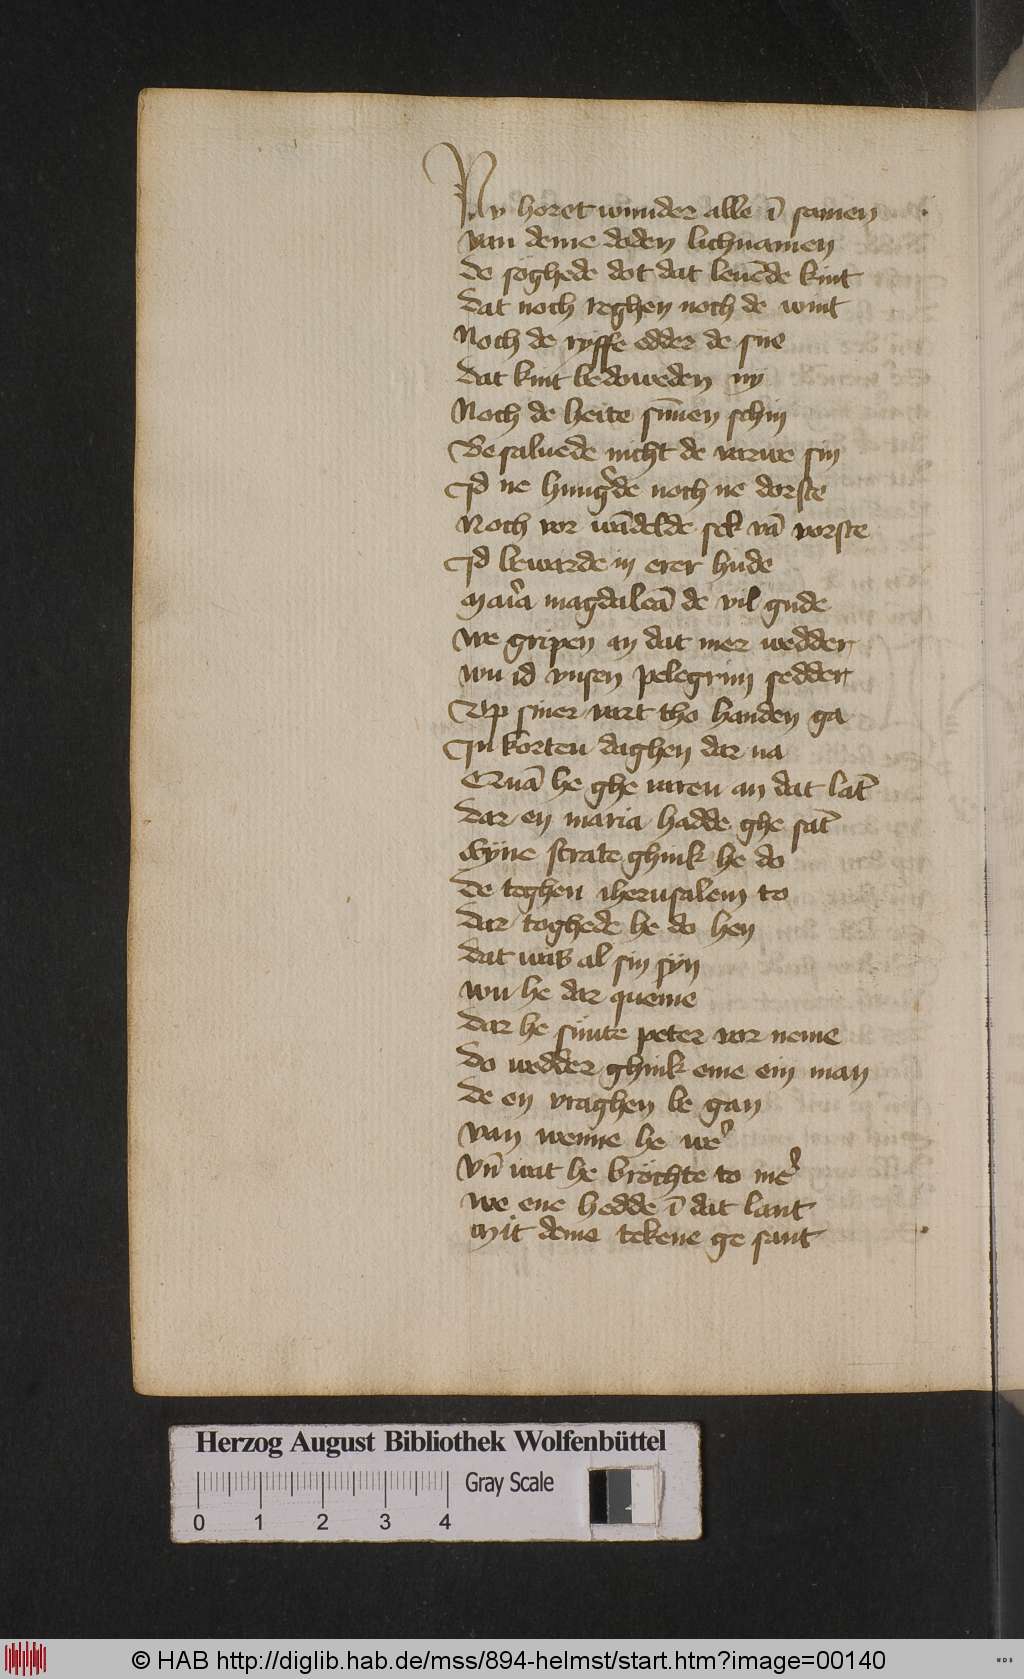 Ny horet wunder alle ī samen
van deme doden lichnamen
de soghede dot dat leuēde kint
dat noch reghen noch de wint
Noch de ryffe edder de sne
dat kint bedoweden ny
Noch de heite sūnen schin
Besaluede nicht de varwe sin
Id ne hungˀde noch ne dorste
Noch vor wādelde sek vā vorste
Id bewarde in erer hude
Mar̉ia magdaleā de vil gude
we gripen an dat mer wedder
wu id vnsen pelegrim sedder
Vp siner vart tho handen ga
In korten daghen dar na
Quā he ghe varen an dat lāt
dar en maria hadde ghe sāt
Eyne strate ghink he do
de teghen iherusalem to
dar toghede he do hen
dat was al sin syn
wu he dar queme
dar he sunte peter vor neme
do wedder ghink eme ein man
de en vraghen be gan
van wenne he weˀ
vn̄ wat he brochte to meˀ
we ene hedde ī dat lant
Mit deme tekene ge sant
Herzog August Bibliothek Wolfenbüttel
Gray Scale
0 1 2 3 4
© HAB http://diglib.hab.de/mss/894-helmst/start.htm?image=00140